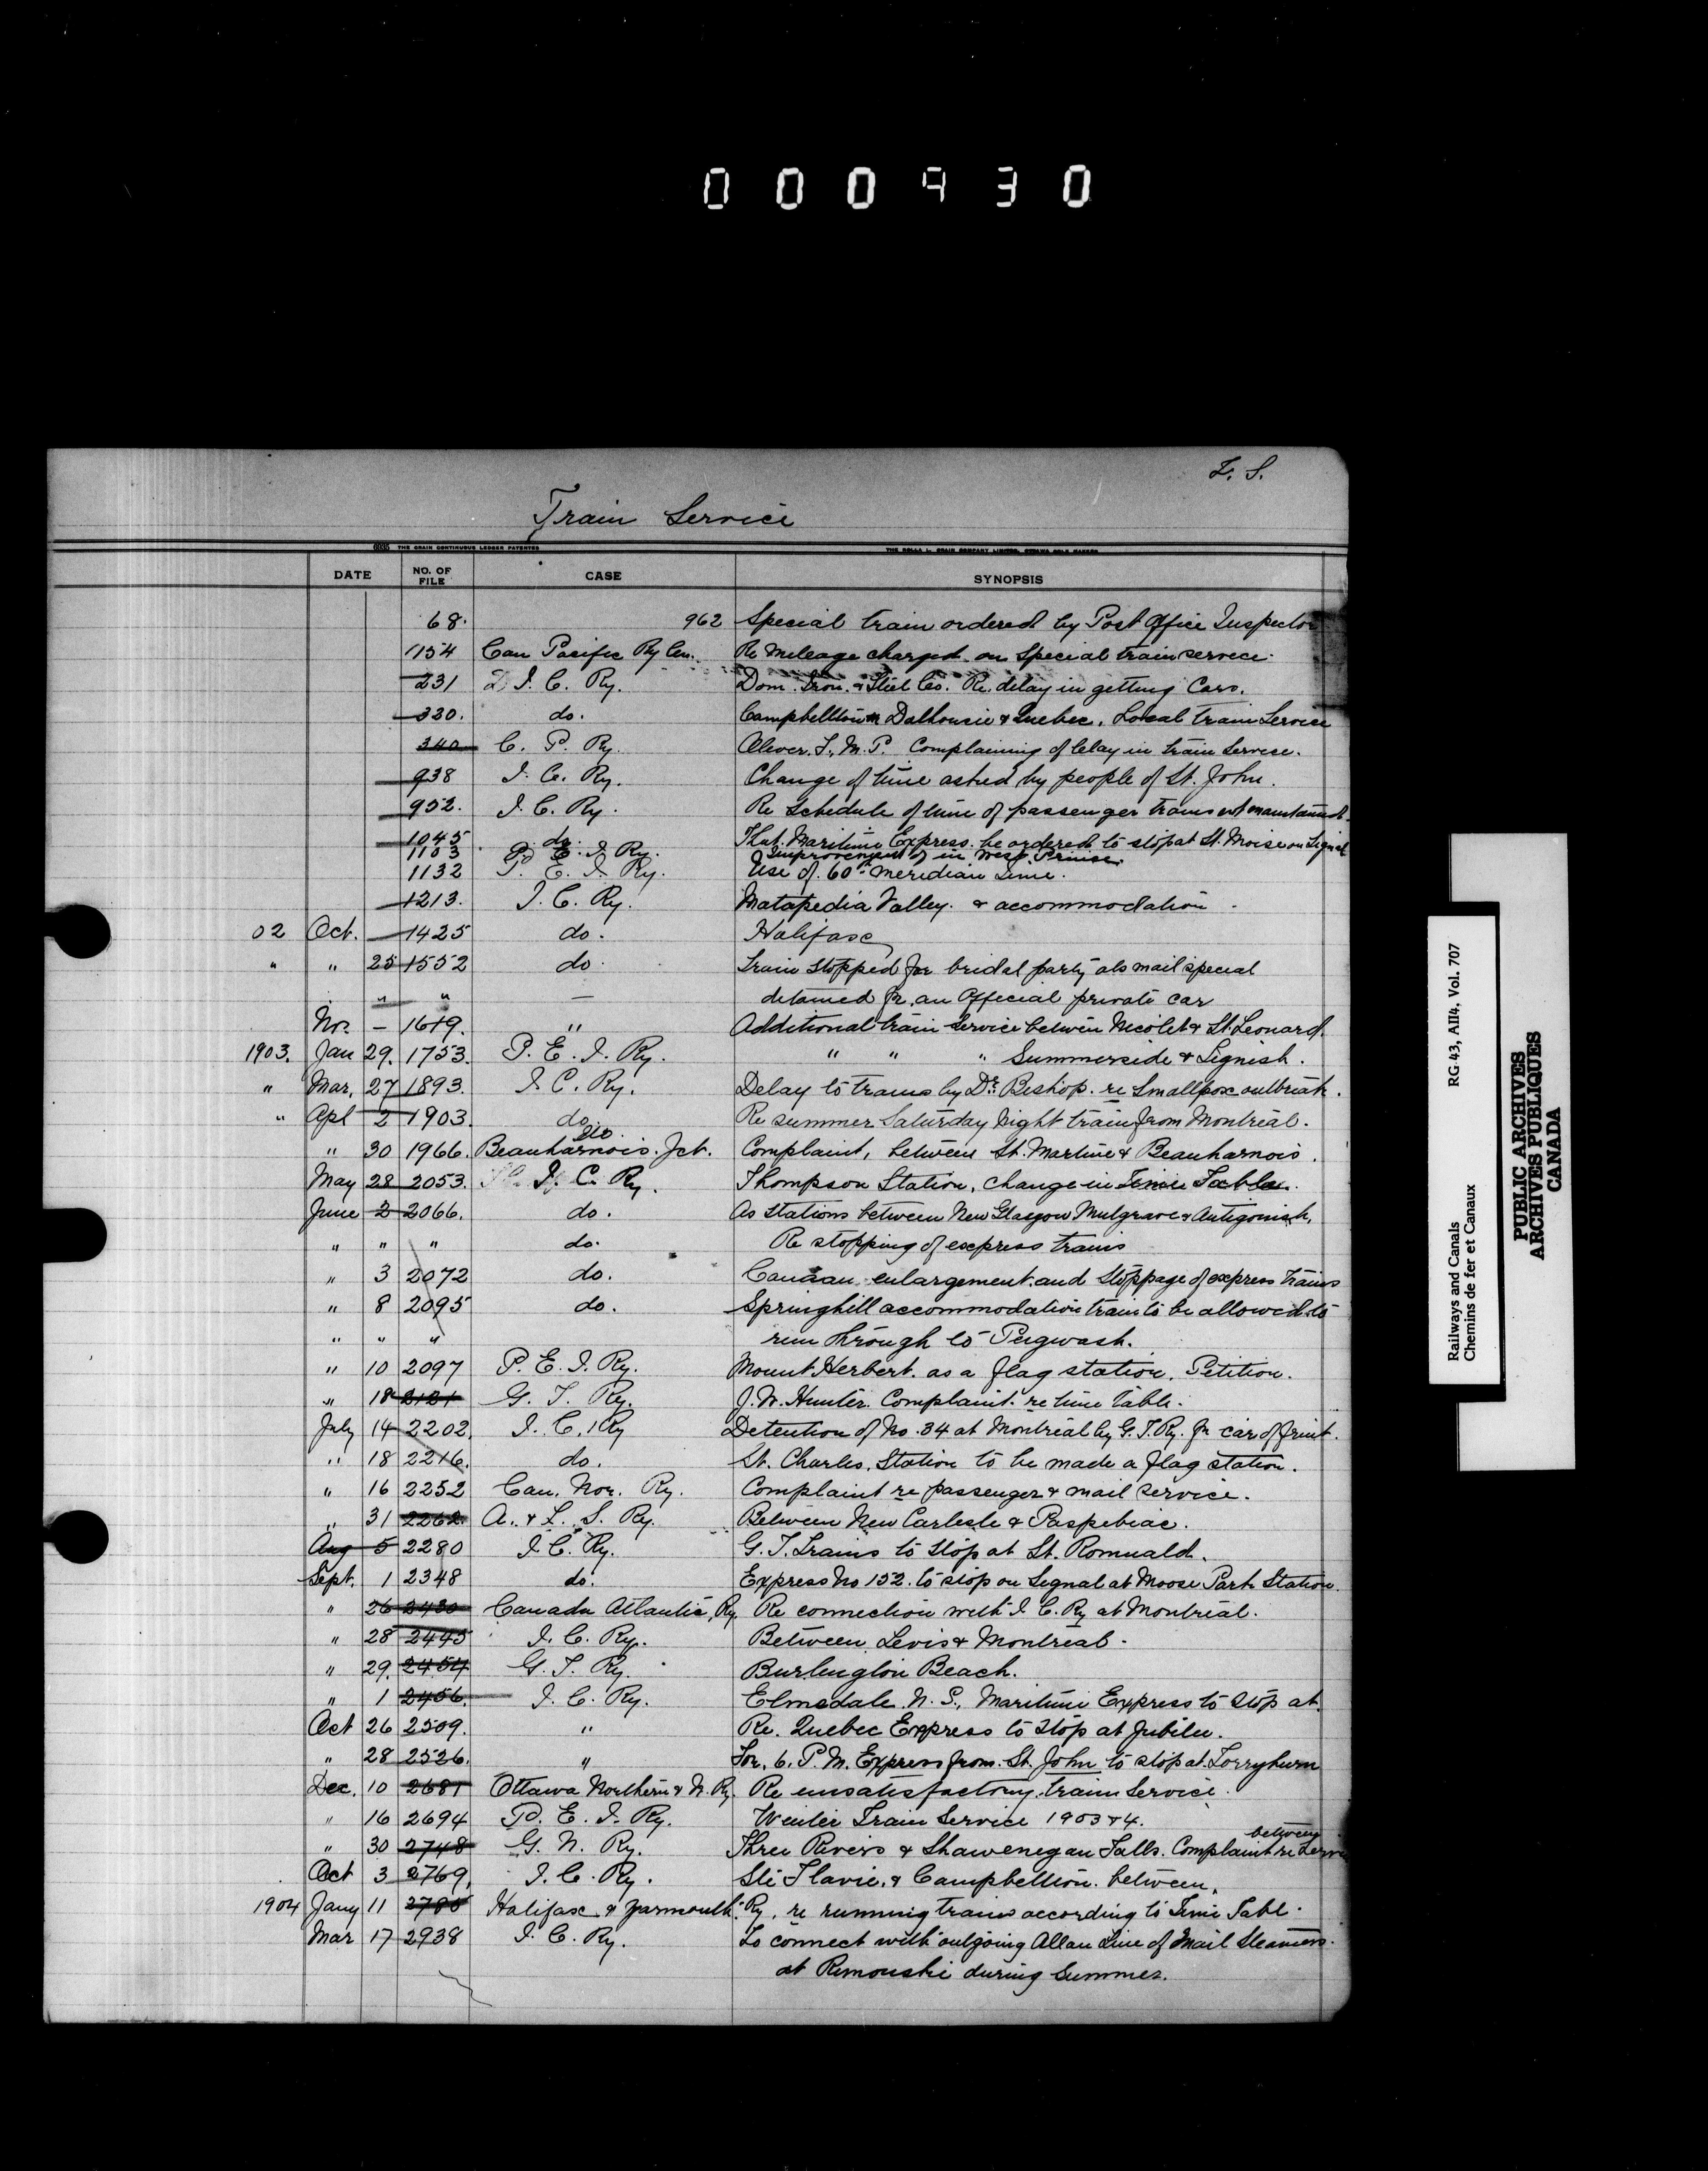 000930
T. S.
Train Service
6035 THE CRAIN CONTINUOUS LEDGER PATENTED THE ROLLA L. CRAIN COMPANY LIMITED, OTTAWA SOLE MAKERS
DATE NO. OF FILE CASE SYNOPSIS
68. 962 Special train ordered by Post Office Inspector
154 Can Pacific Ry Co. Re Mileage charged on Special train service.
231 I. C. Ry. Dom. Iron & Steel Co. Re. delay in getting Cars.
330. do. Campbellton Dalhousie & Quebec. Local train Service
340 C. P. Ry. Oliver. F., M. P. Complaining of delay in train Service.
938 I. C. Ry. Change of time asked by people of St. John.
952. I. C. Ry. Re Schedule of time of passenger trains not maintained.
1045 do. That Maritime Express be ordered to stop at St. Moise on Signal
1103 P. E. I. Ry. Improvement of in West Prince.
1132 P. E. I. Ry. Use of 60th meridian time.
1213. I. C. Ry. Matapedia Valley. & accommodation.
02 Oct. 1425 do. Halifax
" " 25 1552 do. Train stopped for bridal party als mail special
" " — detained for an Official private car
Nov. – 1619. " Additional train service between Nicolet & St. Leonard.
1903. Jan 29. 1753. P. E. I. Ry. " " " Summerside & Tignish.
" Mar. 27 1893. I. C. Ry. Delay to trains by Dr. Bishop. re Smallpox outbreak.
" Apl 2 1903. do. Re summer Saturday Night train from Montreal.
do.
" 30 1966. Beauharnois. Jct. Complaint, between St. Martine & Beauharnois.
May 28 2053. I. C. Ry. Thompson Station, Change in Time Table.
June 2 2066. do. As stations between New Glasgow Mulgrave & Antigonish,
" " " do. Re stopping of express trains
" 3 2072 do. Canaan enlargement and Stoppage of express trains
" 8 2095 do. Springhill accommodation train to be allowed to
" " " run through to Pugwash.
" 10 2097 P. E. I. Ry. Mount Herbert. as a flag station. Petition.
" 18 2121 G. T. Ry. J. W. Hunter. Complaint re time table.
July 14 2202. I. C. Ry Detention of No. 34 at Montreal by G. T. Ry. for car of fruit.
" 18 2216. do. St. Charles. Station to be made a flag station.
" 16 2252 Can. Nor. Ry. Complaint re passenger & mail service.
" 31 2262. A. & L. S. Ry. Between New Carlisle & Paspebiac.
Aug 5 2280 I. C. Ry. G. T. Trains to stop at St. Romuald.
Sept. 1 2348 do. Express No 152. to stop on Signal at Moose Park Station.
" 26 2430 Canada Atlantic, Ry. Re connection with I. C. Ry at Montreal.
" 28 2445 I. C. Ry. Between Levis & Montreal.
" 29. 2454 G. T. Ry. Burlington Beach.
" 1 2456. I. C. Ry. Elmsdale N. S., Maritime Express to stop at.
Oct 26 2509. " Re. Quebec Express to stop at Jubilee.
" 28 2536. " For. 6. P. M. Express from. St. John to stop at Torryburn
Dec. 10 2681 Ottawa Northern & W. Ry. Re unsatisfactory train service.
" 16 2694 P. E. I. Ry. Winter Train Service 1903 & 4.
between
" 30 2748 G. N. Ry. Three Rivers & Shawenegan Falls. Complaint re Service
Oct 3 2769. I. C. Ry. Ste Flavie. & Campbellton. between.
1904 Jany 11 2785 Halifax & Yarmouth. Ry. re running trains according to Time Table.
Mar 17 2938 I. C. Ry. To connect with outgoing Allan Line of Mail Steamers.
at Rimouski during Summer.
Railways and Canals RG 43, AII4, Vol. 707
Chemins de fer et Canaux
PUBLIC ARCHIVES
ARCHIVES PUBLIQUES
CANADA